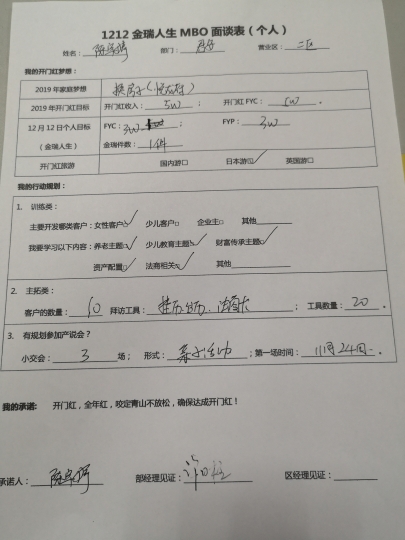 1212 金瑞人生 MBO 面谈表（个人）
姓名： 部门： 营业区：二区
我的开门红梦想：
2019 年家庭梦想 换房子
2019 年开门红目标 开门红收入：5w； 开门红 FYC：5w。
12 月 12 日个人目标（金瑞人生） FYC：3w； FYP：3w
金瑞件数：1件
开门红旅游 国内游□ 日本游☑ 英国游□
我的行动规划：
1. 训练类：
主要开发哪类客户：女性客户☑ 少儿客户□ 企业主□ 其他
我要学习以下内容：养老主题☑ 少儿教育主题☑ 财富传承主题☑
资产配置☑ 法商相关☑ 其他
2. 主拓类：
客户的数量：10 拜访工具：挂历、台历、 ； 工具数量：20。
3. 有规划参加产说会？
小交会：3场； 形式：亲子活动；第一场时间：11月24日。
我的承诺： 开门红，全年红，咬定青山不放松，确保达成开门红！
承诺人： 部经理见证： 区经理见证：